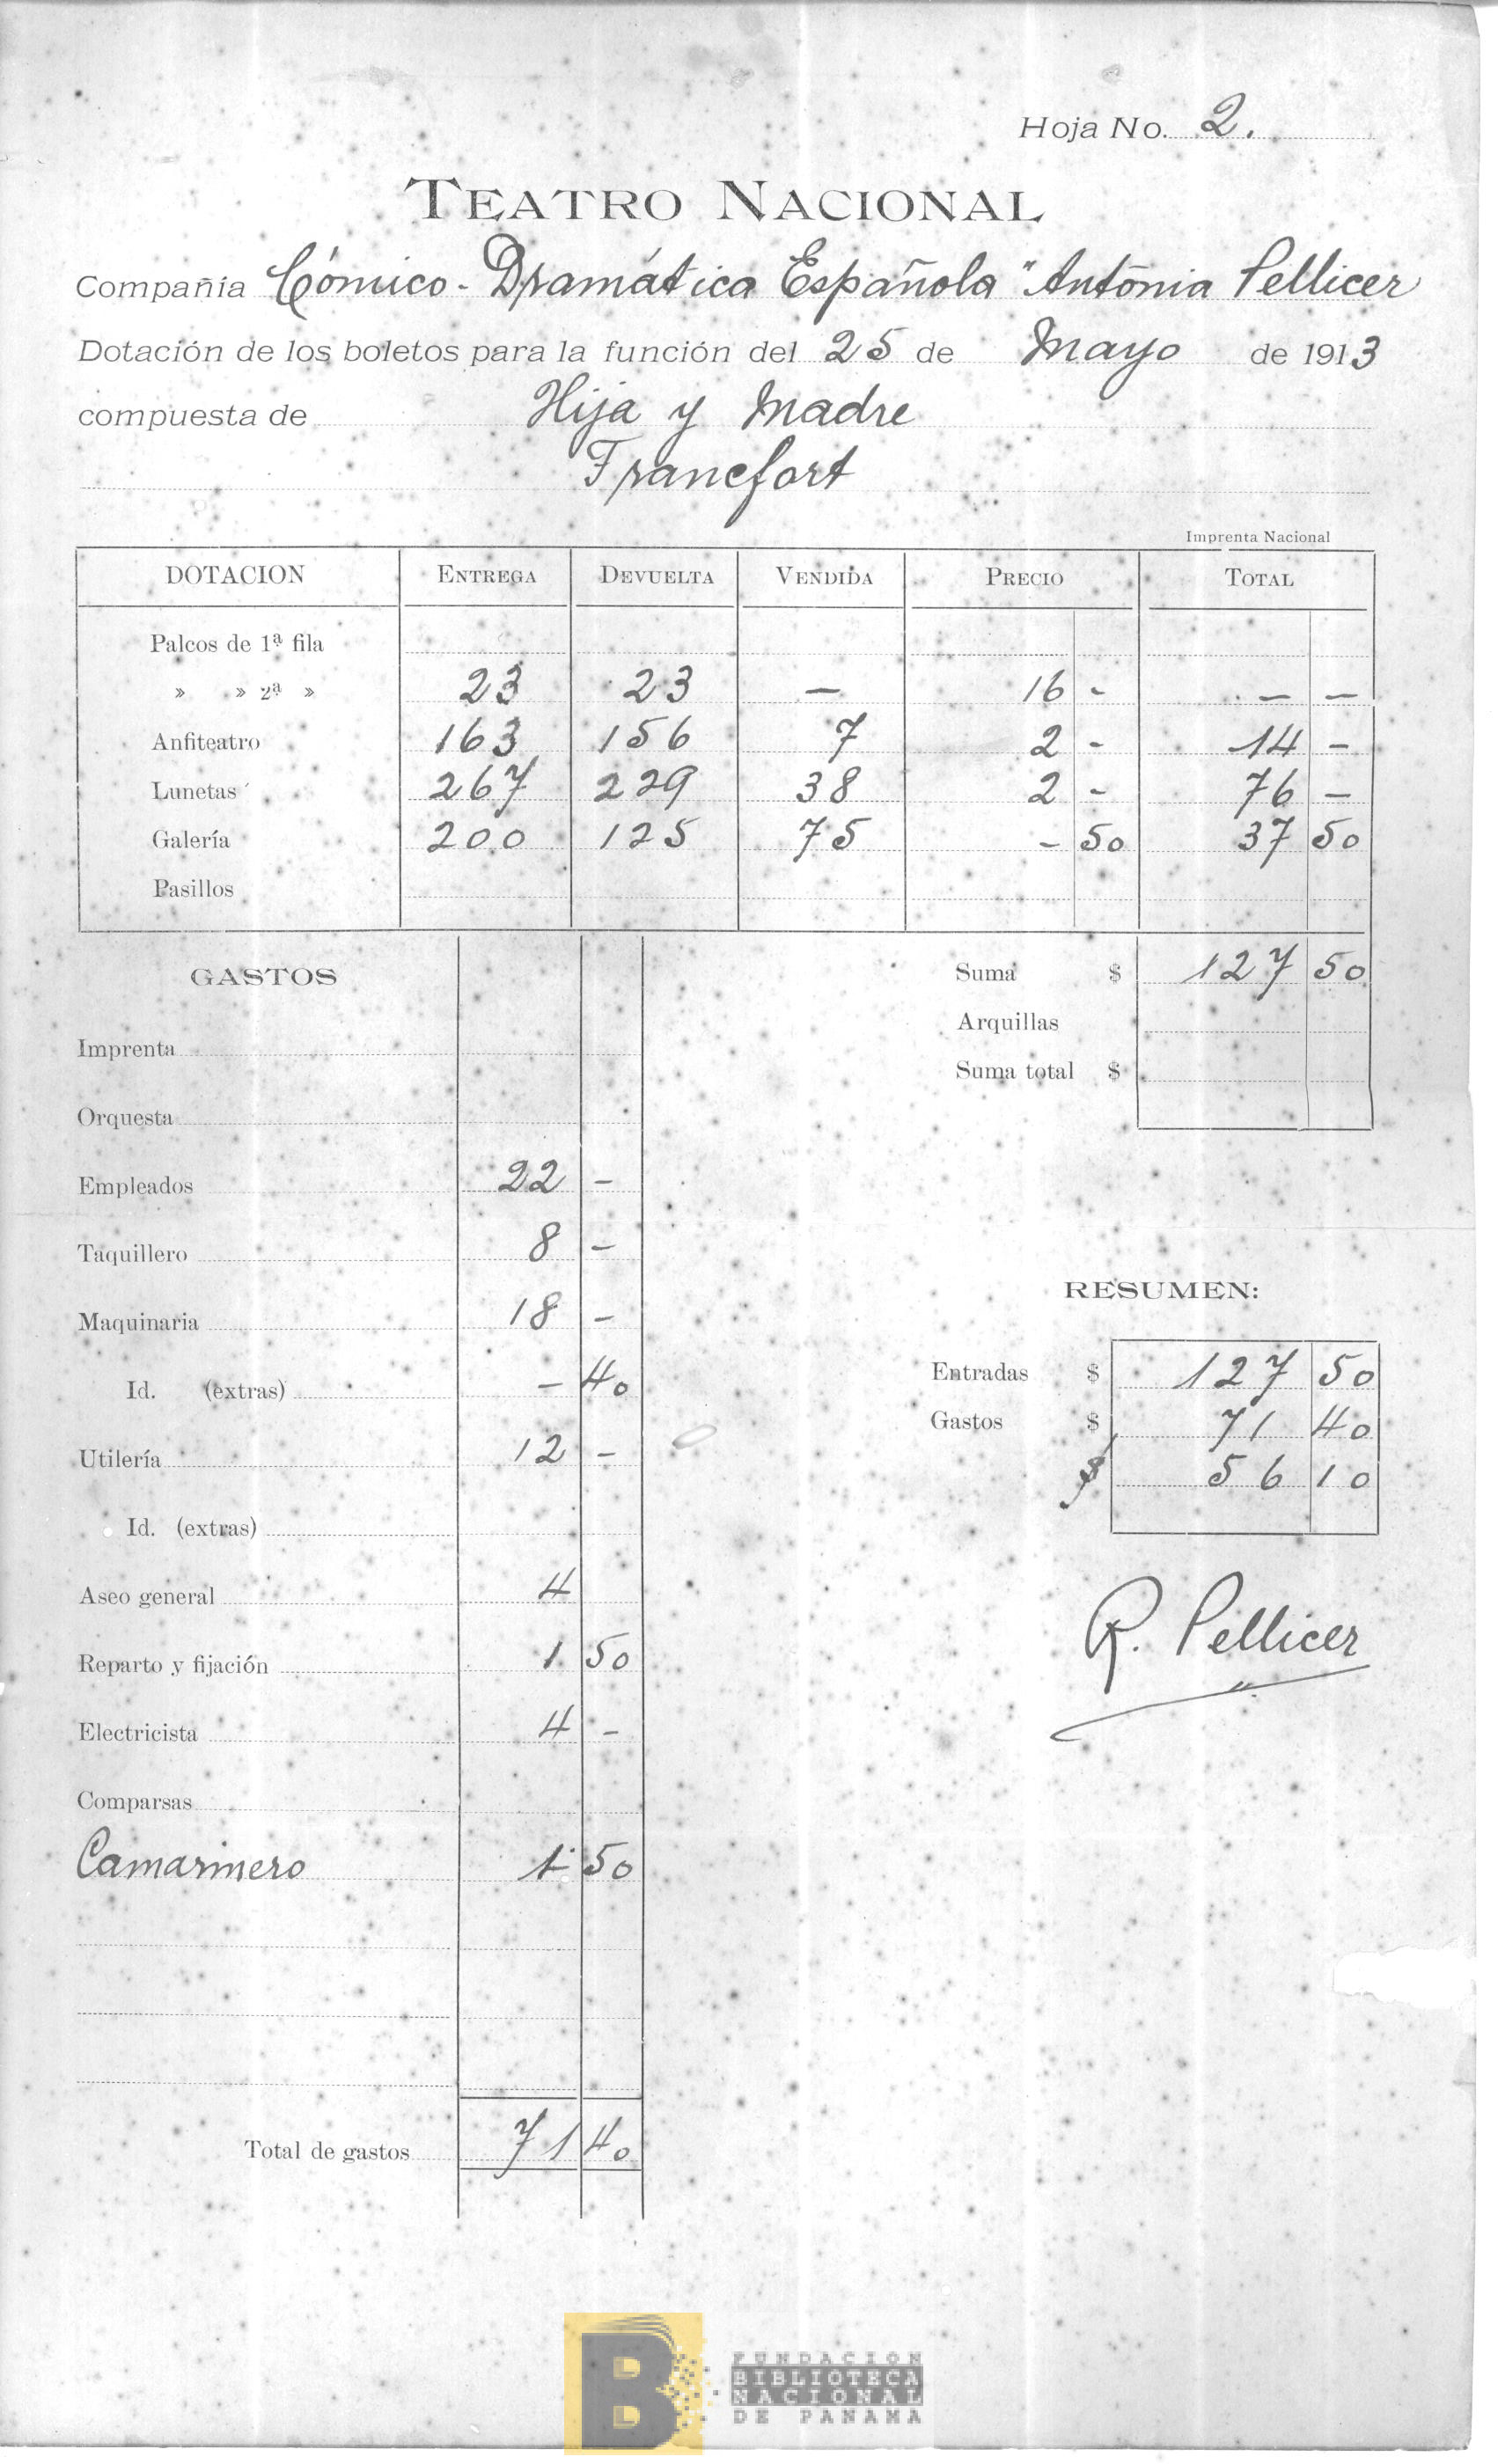 Hoja No. 2.
TEATRO NACIONAL
Compañía Cómico-Dramática Española "Antonia Pellicer
Dotación de los boletos para la función del 25 de Mayo de 1913
compuesta de Hija y Madre
Francfort
Imprenta Nacional
DOTACION ENTREGA DEVUELTA VENDIDA PRECIO TOTAL
Palcos de 1ª fila
» » 2ª » 23 23 — 16 - — —
Anfiteatro 163 156 7 2 - 14 -
Lunetas 267 229 38 2 - 76 -
Galería 200 125 75 - 50 37 50
Pasillos
Suma $ 127 50
Arquillas
Suma total $
GASTOS
Imprenta
Orquesta
Empleados 22 -
Taquillero 8 -
Maquinaria 18 -
Id. (extras) - 40
Utilería 12 -
Id. (extras)
Aseo general 4
Reparto y fijación 1 50
Electricista 4 -
Comparsas
Camarinero 1 50
Total de gastos 71 40
RESUMEN:
Entradas $ 127 50
Gastos $ 71 40
$ 56 10
R. Pellicer
B
FUNDACION
BIBLIOTECA
NACIONAL
DE PANAMA